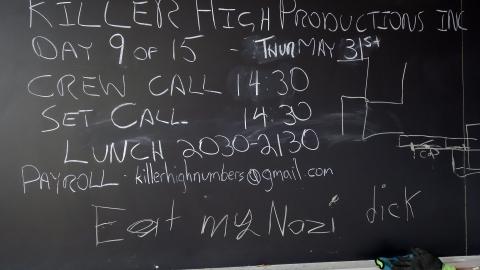 KILLER HIGH PRODUCTIONS INC
DAY 9 OF 15 - THUR MAY 31st
CREW CALL 14:30
SET CALL 14:30
LUNCH 2030-2130
PAYROLL - killerhighnumbers@gmail.com
Eat my Nazi dick